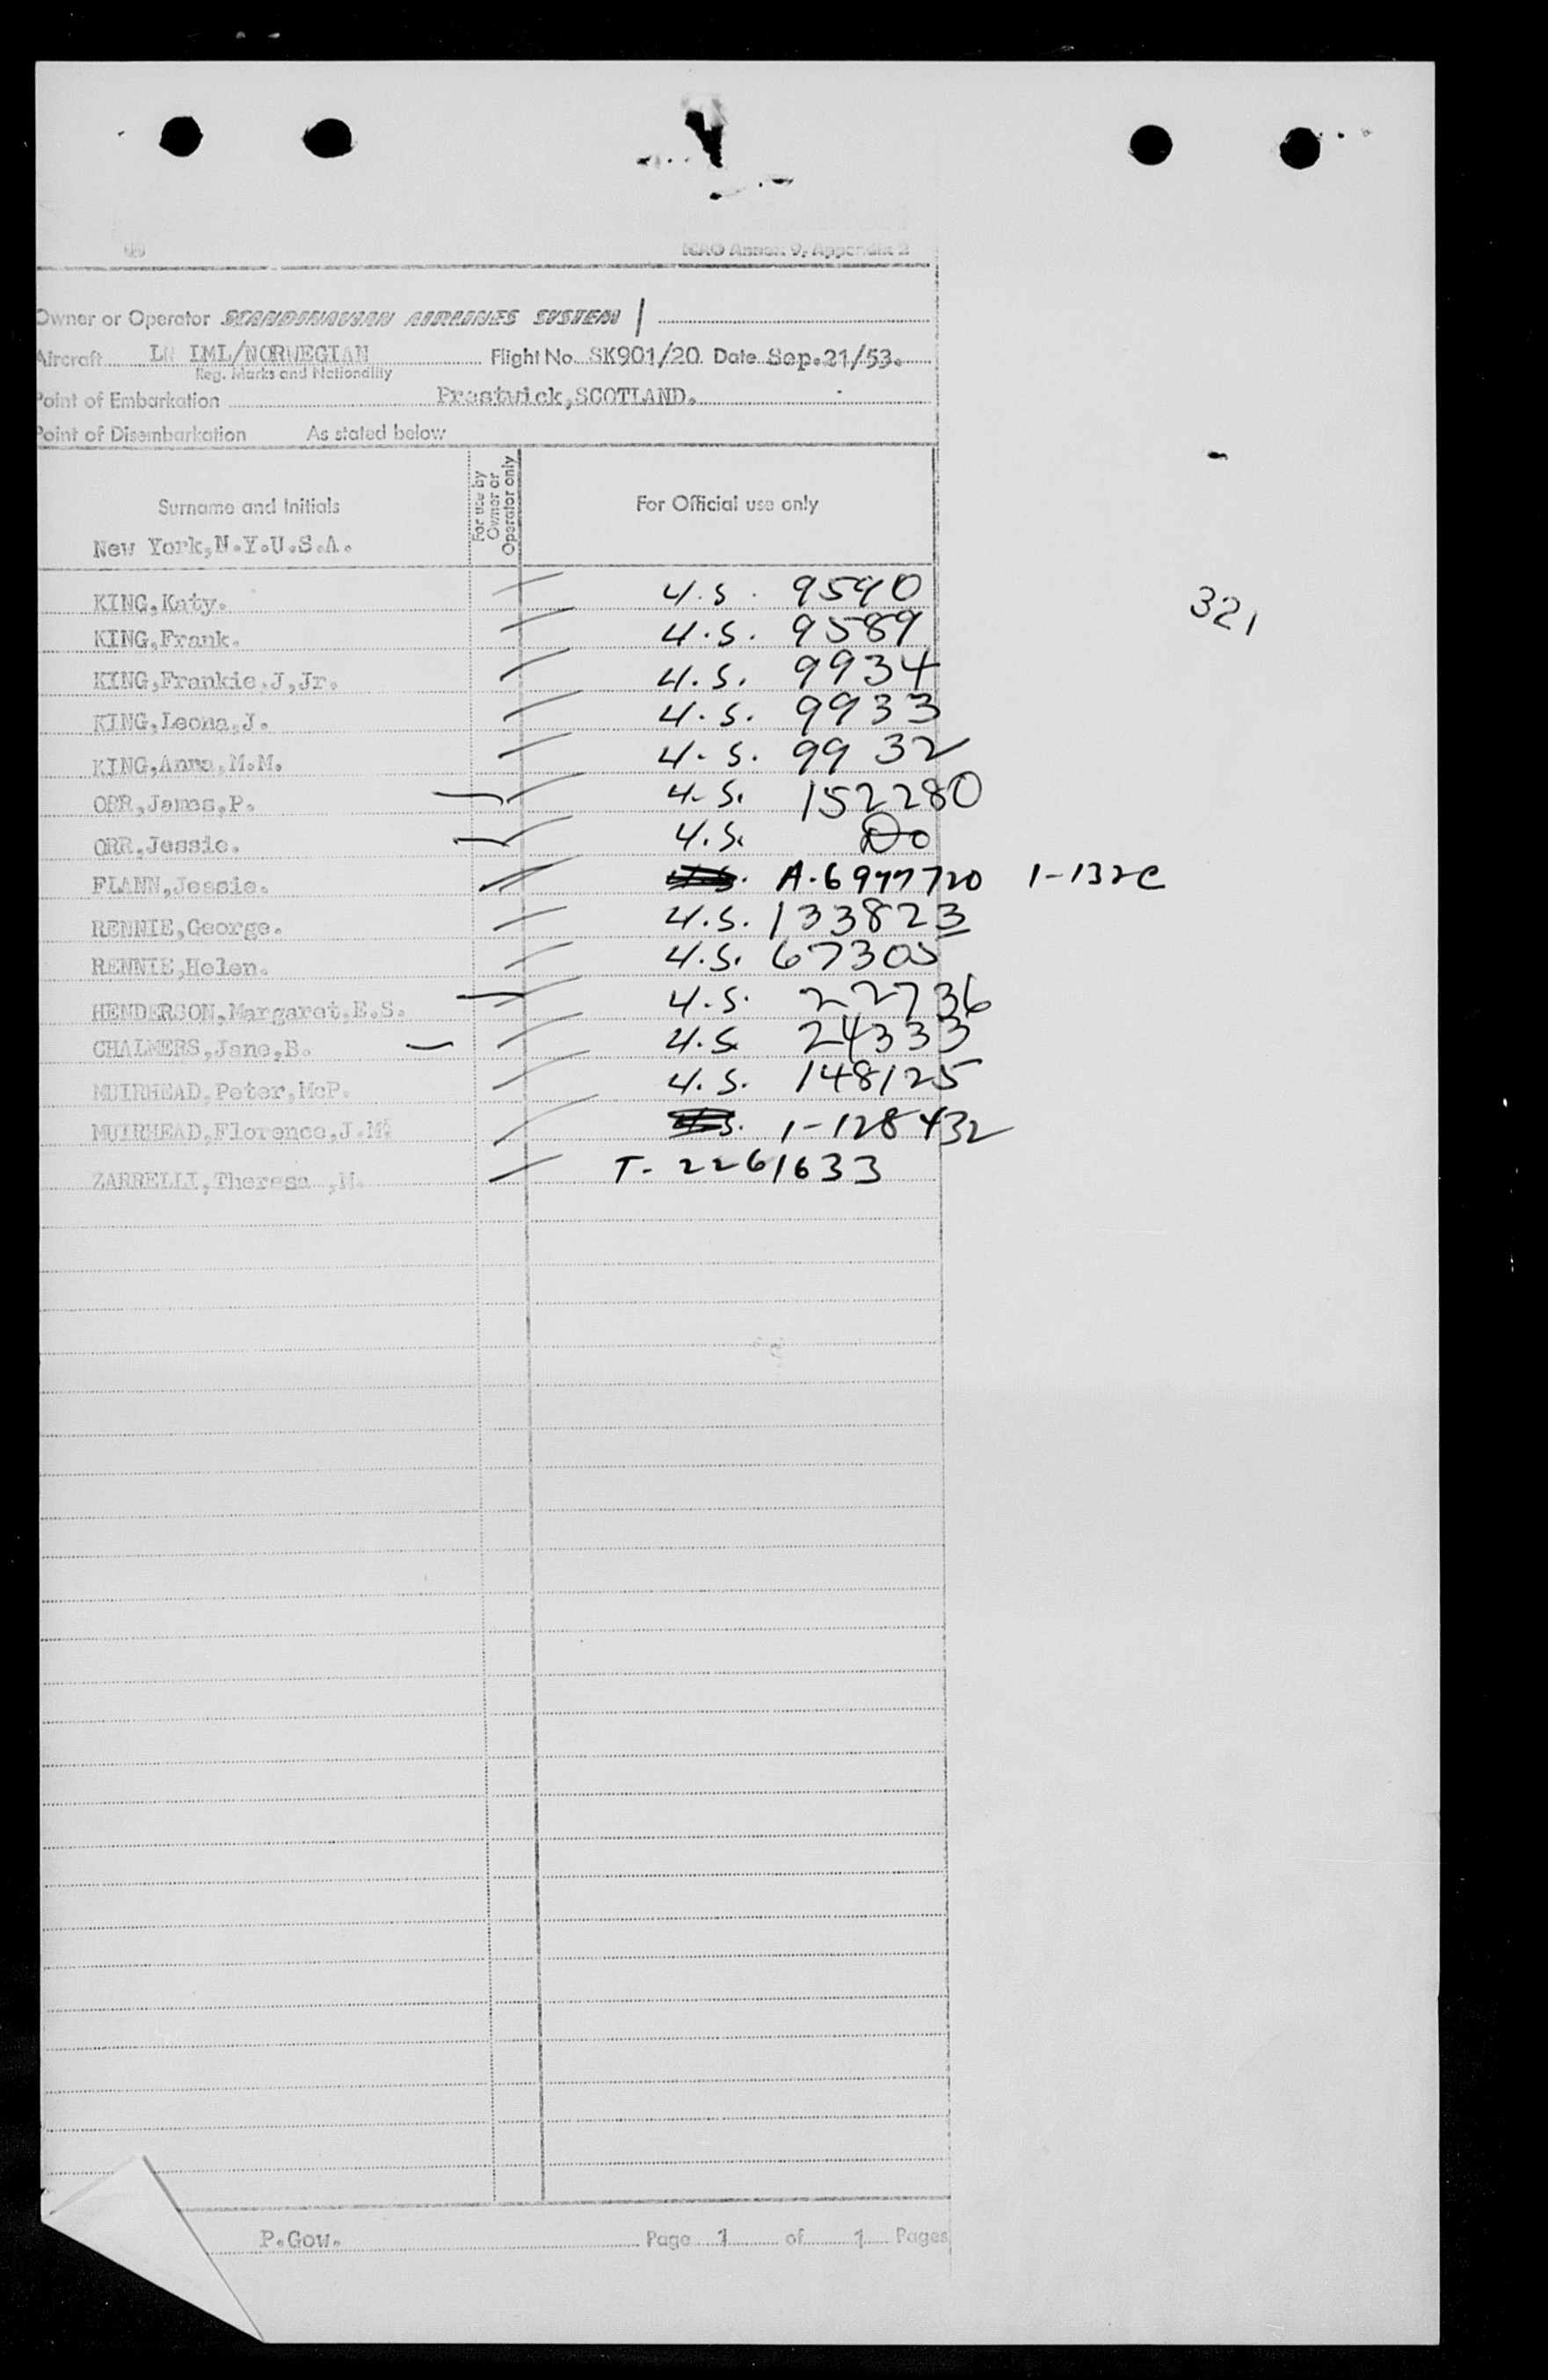 ICAO Annex 9, Appendix 2
Owner or Operator SCANDINAVIAN AIRLINES SYSTEM
Aircraft LN IML/NORWEGIAN Flight No. SK901/20 Date Sep.21/53.
Reg. Marks and Nationality
Point of Embarkation Prestwick,SCOTLAND.
Point of Disembarkation As stated below
Surname and Initials
For use by Owner or Operator only
For Official use only
New York,N.Y.U.S.A.
KING,Katy. U.S. 9590
321
KING,Frank. U.S. 9589
KING,Frankie.J,Jr. U.S. 9934
KING,Leona,J. U.S. 9933
KING,Anna,M.M. U.S. 9932
ORR,James,P. U.S. 152280
ORR,Jessie. U.S. Do
FLANN,Jessie. A-6977720 1-132c
RENNIE,George. U.S. 133823
RENNIE,Helen. U.S. 67305
HENDERSON,Margaret,E.S. U.S. 22736
CHALMERS,Jane,B. U.S. 24333
MUIRHEAD,Peter,McP. U.S. 148125
MUIRHEAD,Florence,J. 1-128432
ZARRELLI,Theresa T-2261633
P.Gow. Page 1 of 1 Pages